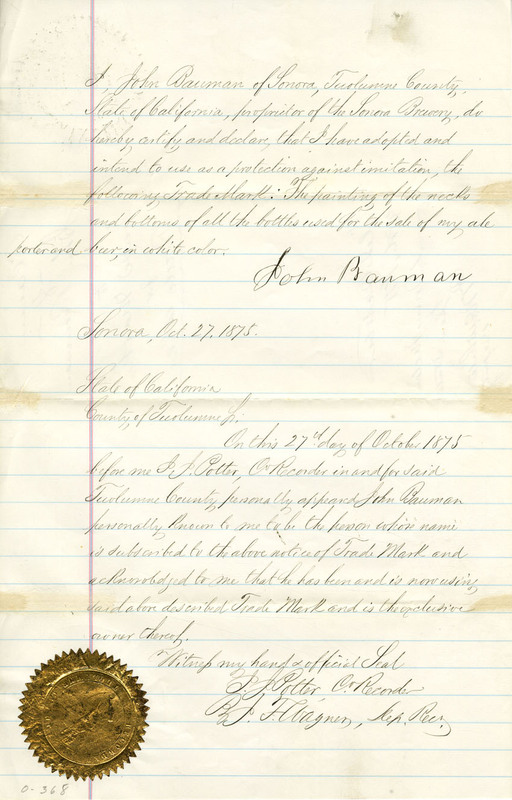 I, John Bauman of Sonora, Tuolumne County,
State of California, proprietor of the Sonora Brewery, do
hereby certify and declare, that I have adopted and
intend to use as a protection against imitation, the
following Trade Mark: The painting of the necks
and bottoms of all the bottles used for the sale of my ale
porter and beer, in white color.
John Bauman
Sonora, Oct. 27, 1875.
State of California
County of Tuolumne ss.
On this 27th day of October 1875
before me J. J. Potter, Co Recorder in and for said
Tuolumne County, personally appeared John Bauman
personally known to me to be the person whose name
is subscribed to the above notice of Trade Mark and
acknowledged to me that he has been and is now using
said above described Trade Mark and is the exclusive
owner thereof.
Witness my hand & official Seal
J. J. Potter, Co Recorder
By J. F. Wagner, Dep. Rec.
0-368